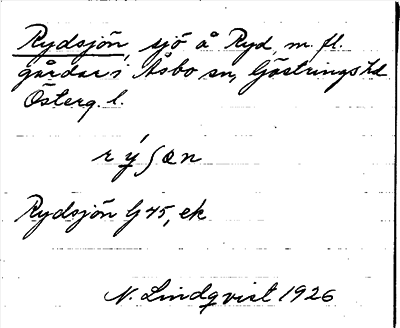 Rydsjön, sjö å Ryd, m. fl.
gårdar i Åsbo sn, Göstrings hd
Österg. l.
rý∫ƶn
Rydsjön G 45, ek
N. Lindqvist 1926